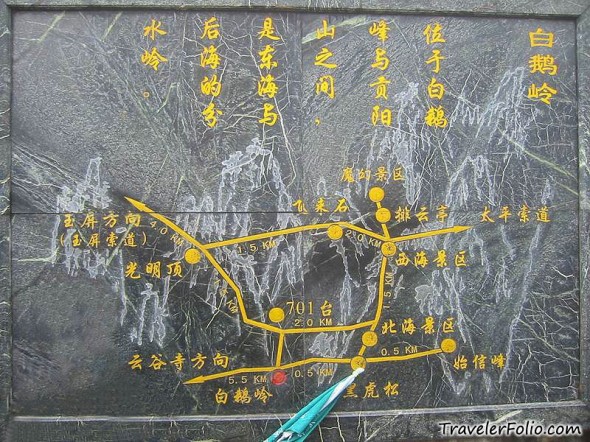 白鹅岭
位于白鹅
峰与贡阳
山之间，
是东海与
后海的分
水岭。
魔幻景区
飞来石
排云亭
太平索道
玉屏方向
(玉屏索道)
光明顶
1.5 KM
2.0 KM
西海景区
701台
2.0 KM
北海景区
云谷寺方向
5.5 KM
0.5 KM
0.5 KM
始信峰
白鹅岭
黑虎松
TravelerFolio.com